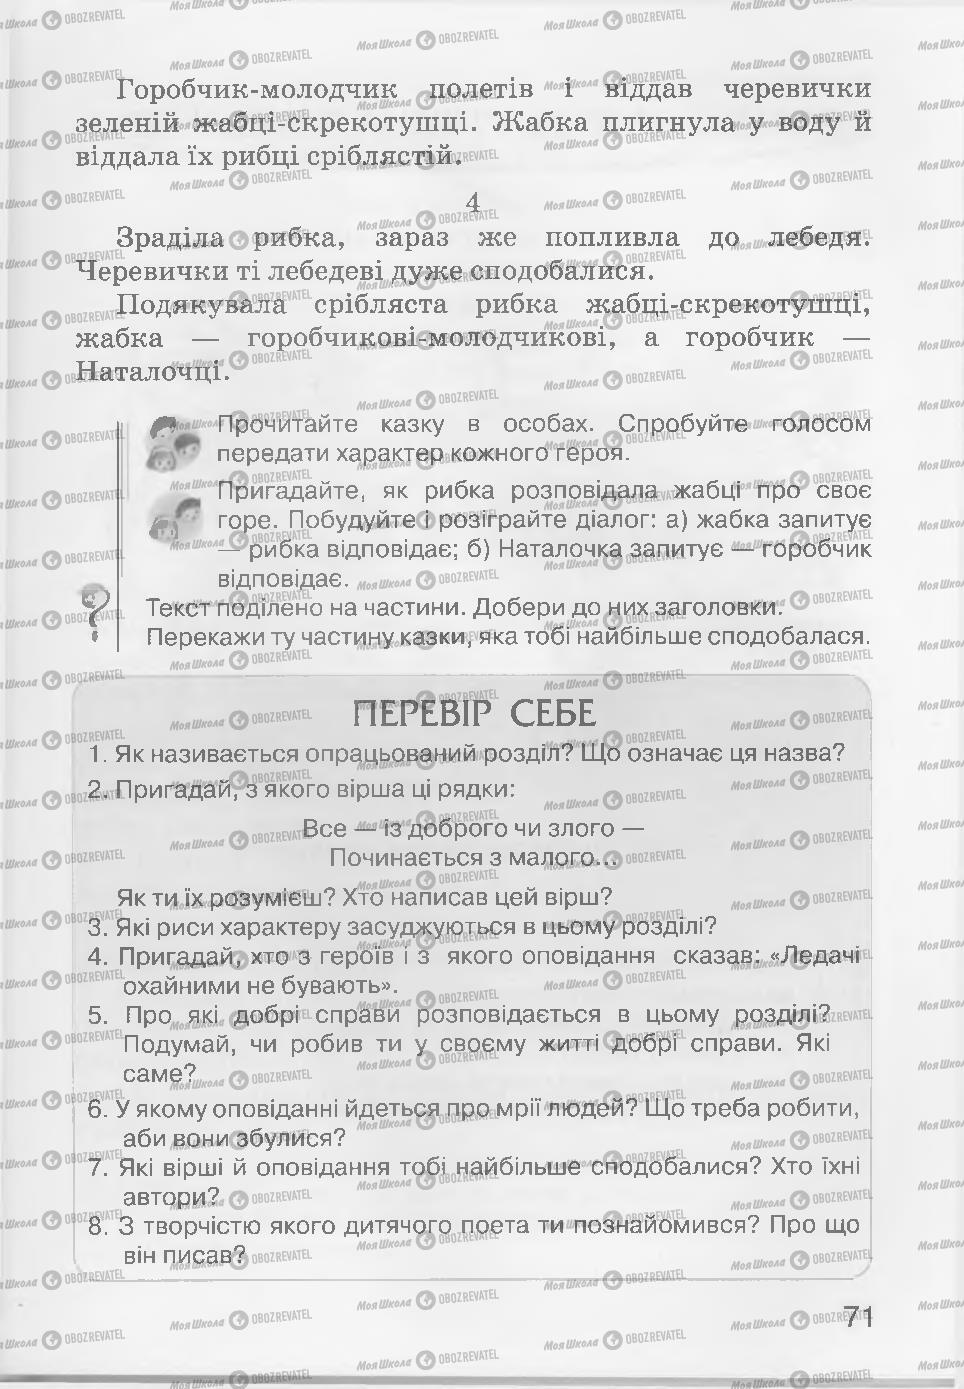 Горобчик-молодчик полетів і віддав черевички
зеленій жабці-скрекотушці. Жабка плигнула у воду й
віддала їх рибці сріблястій.
4
Зраділа рибка, зараз же попливла до лебедя.
Черевички ті лебедеві дуже сподобалися.
Подякувала срібляста рибка жабці-скрекотушці,
жабка — горобчикові-молодчикові, а горобчик —
Наталочці.
Прочитайте казку в особах. Спробуйте голосом
передати характер кожного героя.
Пригадайте, як рибка розповідала жабці про своє
горе. Побудуйте і розіграйте діалог: а) жабка запитує
— рибка відповідає; б) Наталочка запитує — горобчик
відповідає.
?
Текст поділено на частини. Добери до них заголовки.
Перекажи ту частину казки, яка тобі найбільше сподобалася.
ПЕРЕВІР СЕБЕ
1. Як називається опрацьований розділ? Що означає ця назва?
2. Пригадай, з якого вірша ці рядки:
Все — із доброго чи злого —
Починається з малого...
Як ти їх розумієш? Хто написав цей вірш?
3. Які риси характеру засуджуються в цьому розділі?
4. Пригадай, хто з героїв і з якого оповідання сказав: «Ледачі
охайними не бувають».
5. Про які добрі справи розповідається в цьому розділі?
Подумай, чи робив ти у своєму житті добрі справи. Які
саме?
6. У якому оповіданні йдеться про мрії людей? Що треба робити,
аби вони збулися?
7. Які вірші й оповідання тобі найбільше сподобалися? Хто їхні
автори?
8. З творчістю якого дитячого поета ти познайомився? Про що
він писав?
71
Моя Школа OBOZREVATEL